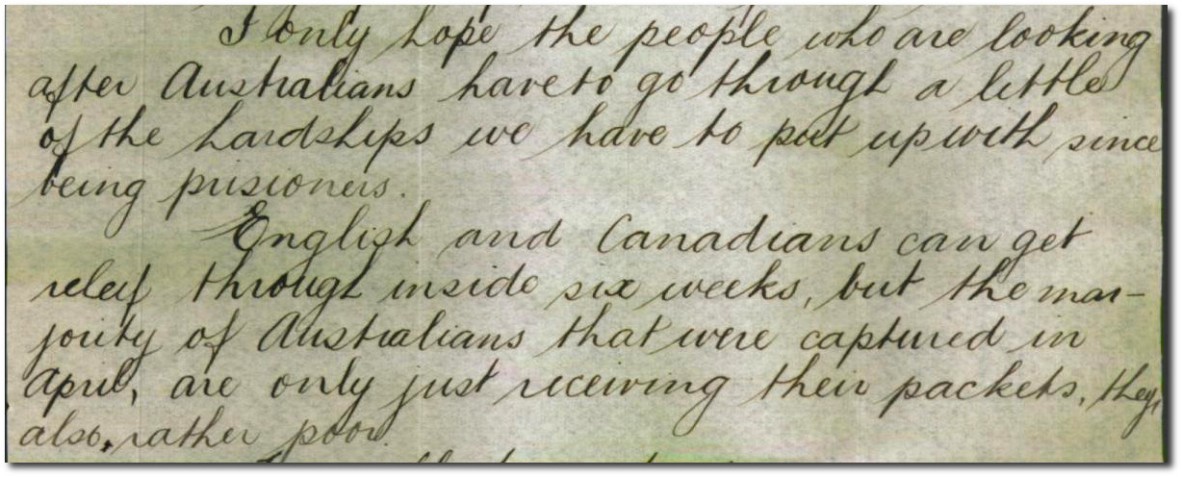 I only hope the people who are looking
after Australians have to go through a little
of the hardships we have to put up with since
being prisioners.
English and Canadians can get
releif through inside six weeks, but the mar-
jority of Australians that were captured in
April, are only just receiving their packets, they
also, rather poor.